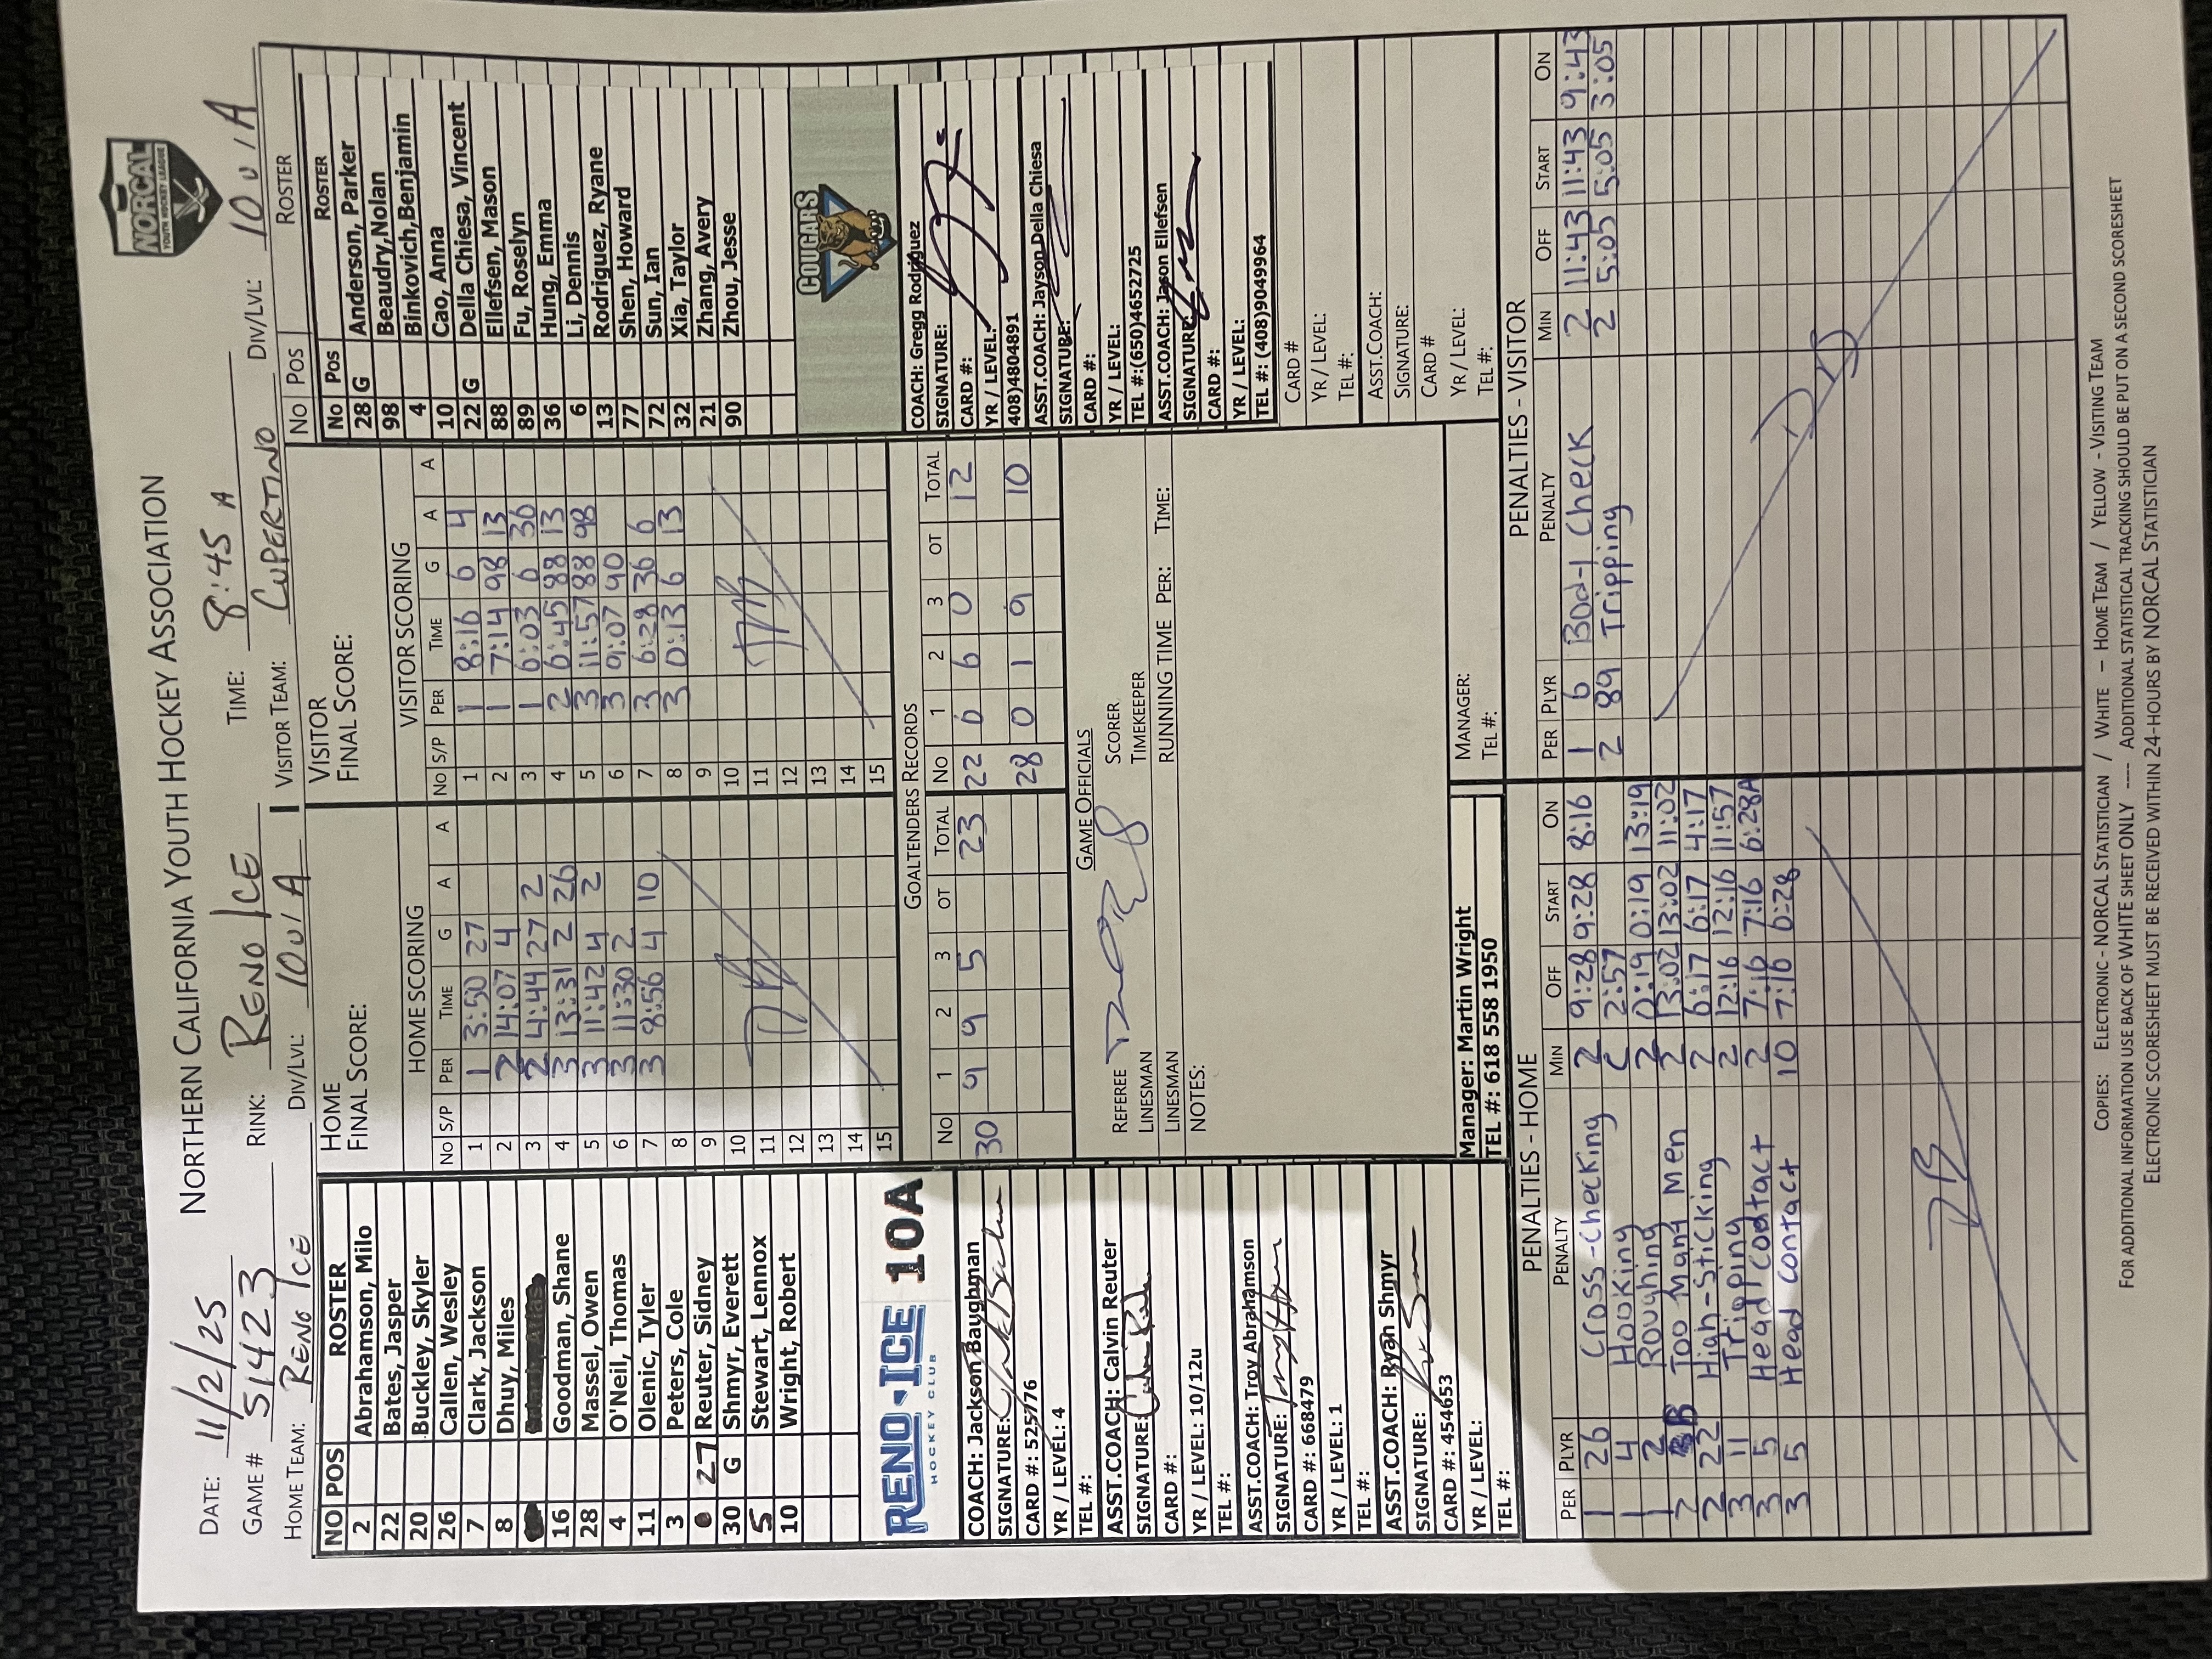 NORTHERN CALIFORNIA YOUTH HOCKEY ASSOCIATION
NORCAL
YOUTH HOCKEY LEAGUE
DATE: 11/2/25
GAME # 51423 RINK: RENO ICE TIME: 8:45 A
HOME TEAM: RENO ICE DIV/LVL: 10U/A VISITOR TEAM: CUPERTINO DIV/LVL: 10U/A
NO POS ROSTER
2 Abrahamson, Milo
22 Bates, Jasper
20 Buckley, Skyler
26 Callen, Wesley
7 Clark, Jackson
8 Dhuy, Miles
16 Goodman, Shane
28 Massel, Owen
4 O'Neil, Thomas
11 Olenic, Tyler
3 Peters, Cole
27 Reuter, Sidney
30 G Shmyr, Everett
5 Stewart, Lennox
10 Wright, Robert
RENO ICE 10A
HOCKEY CLUB
COACH: Jackson Baughman
SIGNATURE:
CARD #: 525776
YR / LEVEL: 4
TEL #:
ASST.COACH: Calvin Reuter
SIGNATURE:
CARD #:
YR / LEVEL: 10/12u
TEL #:
ASST.COACH: Troy Abrahamson
SIGNATURE:
CARD #: 668479
YR / LEVEL: 1
TEL #:
ASST.COACH: Ryan Shmyr
SIGNATURE:
CARD #: 454653
YR / LEVEL:
TEL #:
HOME
FINAL SCORE:
HOME SCORING
No S/P PER TIME G A A
1 1 3:50 27
2 2 14:07 4
3 2 4:44 27 2
4 3 13:31 2 26
5 3 11:42 4 2
6 3 11:30 2
7 3 8:56 4 10
8
9
10
11
12
13
14
15
VISITOR
FINAL SCORE:
VISITOR SCORING
No S/P PER TIME G A A
1 1 8:16 6 4
2 1 7:14 98 13
3 1 6:03 6 36
4 2 6:45 88 13
5 3 11:57 88 98
6 3 9:07 90
7 3 6:28 36 6
8 3 0:13 6 13
9
10
11
12
13
14
15
GOALTENDERS RECORDS
No 1 2 3 OT TOTAL No 1 2 3 OT TOTAL
30 9 9 5 23 22 6 6 0 12
28 0 1 9 10
GAME OFFICIALS
REFEREE SCORER
LINESMAN TIMEKEEPER
LINESMAN RUNNING TIME PER: TIME:
NOTES:
Manager: Martin Wright
TEL #: 618 558 1950
MANAGER:
TEL #:
No Pos ROSTER
No Pos ROSTER
28 G Anderson, Parker
98 Beaudry,Nolan
4 Binkovich,Benjamin
10 Cao, Anna
22 G Della Chiesa, Vincent
88 Ellefsen, Mason
89 Fu, Roselyn
36 Hung, Emma
6 Li, Dennis
13 Rodriguez, Ryane
77 Shen, Howard
72 Sun, Ian
32 Xia, Taylor
21 Zhang, Avery
90 Zhou, Jesse
COUGARS
COACH: Gregg Rodriguez
SIGNATURE:
CARD #:
YR / LEVEL:
408)4804891
ASST.COACH: Jayson Della Chiesa
SIGNATURE:
CARD #:
YR / LEVEL:
TEL #:(650)4652725
ASST.COACH: Jason Ellefsen
SIGNATURE:
CARD #:
YR / LEVEL:
TEL #: (408)9049964
CARD #
YR / LEVEL:
TEL #:
ASST.COACH:
SIGNATURE:
CARD #
YR / LEVEL:
TEL #:
PENALTIES - HOME
PER PLYR PENALTY MIN OFF START ON
1 26 Cross-Checking 2 9:28 9:28 8:16
1 4 Hooking 2:57
1 2 Roughing 2 0:19 0:19 13:19
2 B Too Many Men 2 13:02 13:02 11:02
2 22 High-Sticking 2 6:17 6:17 4:17
3 11 Tripping 2 12:16 12:16 11:57
3 5 Head Contact 2 7:16 7:16 6:28
3 5 Head Contact 10 7:16 6:28
PENALTIES - VISITOR
PER PLYR PENALTY MIN OFF START ON
1 6 Body Check 2 11:43 11:43 9:43
2 89 Tripping 2 5:05 5:05 3:05
COPIES: ELECTRONIC - NORCAL STATISTICIAN / WHITE – HOME TEAM / YELLOW - VISITING TEAM
FOR ADDITIONAL INFORMATION USE BACK OF WHITE SHEET ONLY ---- ADDITIONAL STATISTICAL TRACKING SHOULD BE PUT ON A SECOND SCORESHEET
ELECTRONIC SCORESHEET MUST BE RECEIVED WITHIN 24-HOURS BY NORCAL STATISTICIAN